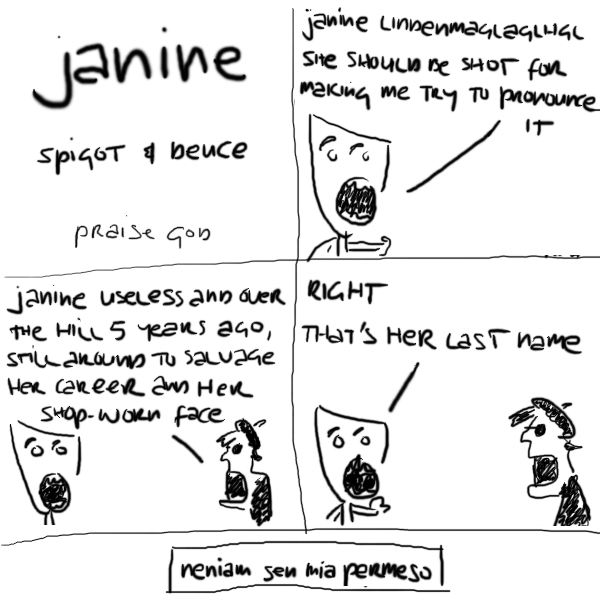 janine
SPIGOT & DEUCE
PRAISE GOD
janine LINDENMAGLAGLHGL
SHE SHOULD BE SHOT FOR
MAKING ME TRY TO PRONOUNCE
IT
janine USELESS AND OVER
THE HILL 5 YEARS AGO,
STILL AROUND TO SALVAGE
HER CAREER AND HER
SHOP-WORN FACE
RIGHT
THAT'S HER LAST NAME
neniam sen mia permeso